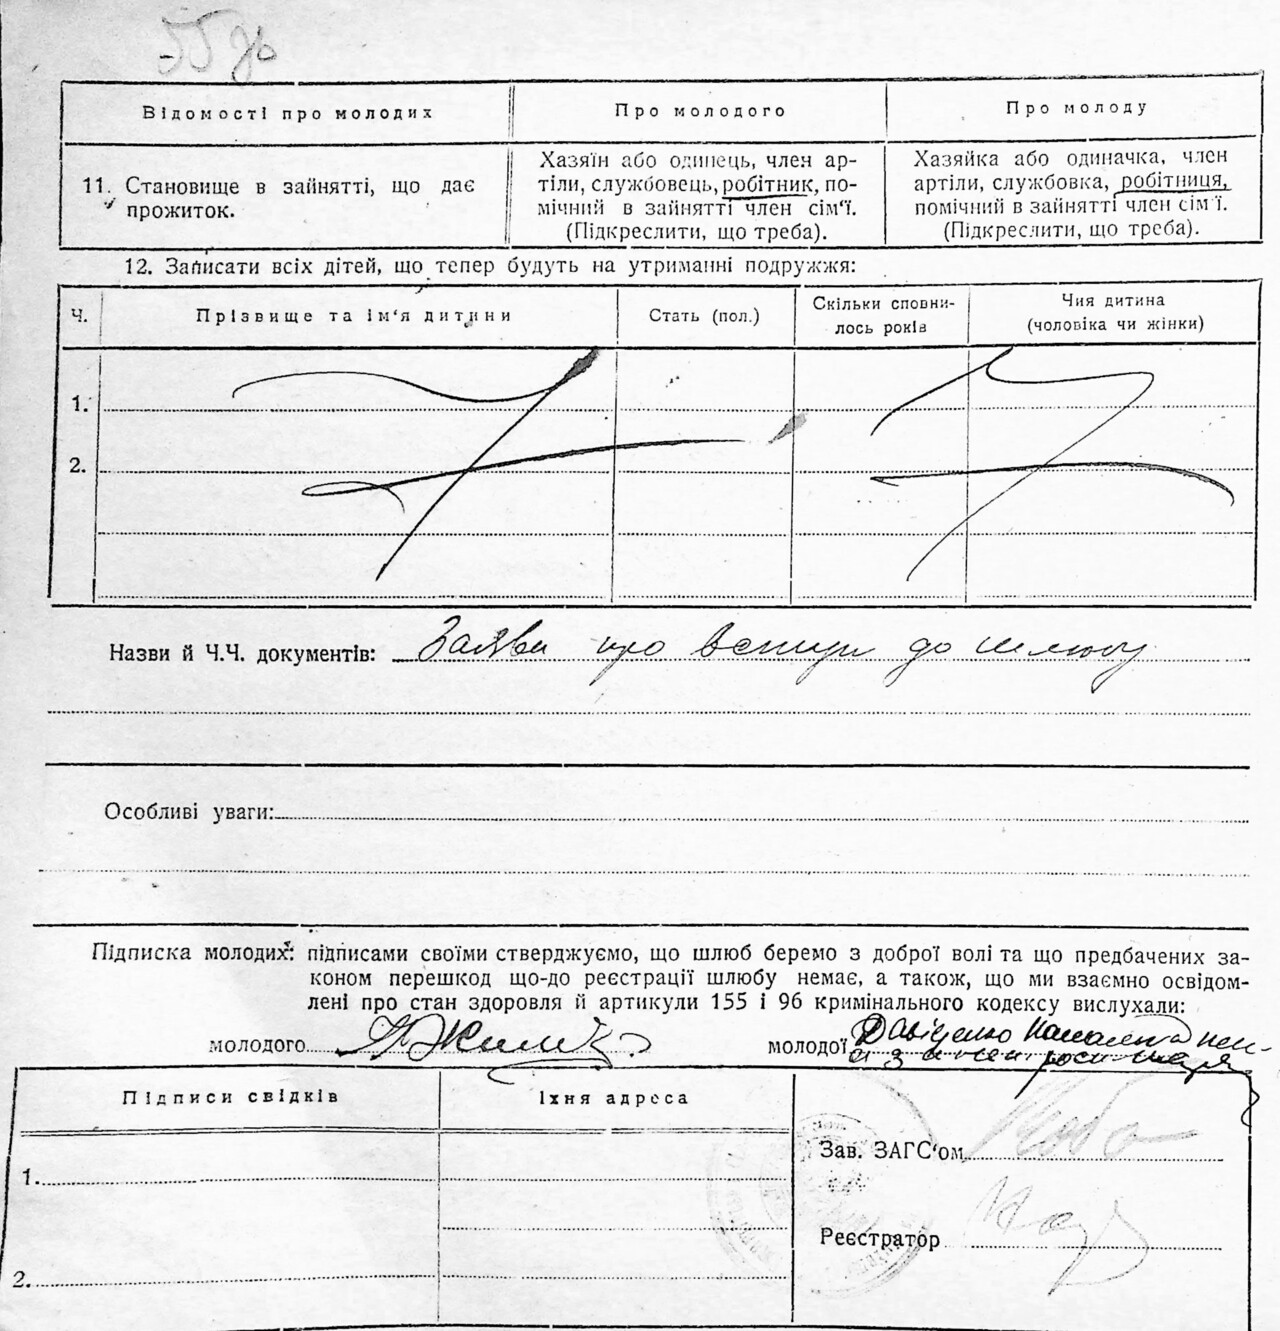 Відомості про молодих
Про молодого
Про молоду
11. Становище в зайнятті, що дає
прожиток.
Хазяїн або одинець, член ар-
тілі, службовець, робітник, по-
мічний в зайнятті член сім'ї.
(Підкреслити, що треба).
Хазяйка або одиначка, член
артіли, службовка, робітниця,
помічний в зайнятті член сім'ї.
(Підкреслити, що треба).
12. Записати всіх дітей, що тепер будуть на утриманні подружжя:
Ч.
Прізвище та ім'я дитини
Стать (пол.)
Скільки сповни-
лось років
Чия дитина
(чоловіка чи жінки)
1.
2.
Назви й Ч.Ч. документів: Заяви про вступ до шлюбу
Особливі уваги:
Підписка молодих: підписами своїми стверджуємо, що шлюб беремо з доброї волі та що предбачених за-
коном перешкод що-до реєстрації шлюбу немає, а також, що ми взаємно освідом-
лені про стан здоровля й артикули 155 і 96 кримінального кодексу вислухали:
молодого
молодої
Підписи свідків
Їхня адреса
1.
2.
Зав. ЗАГС'ом
Реєстратор